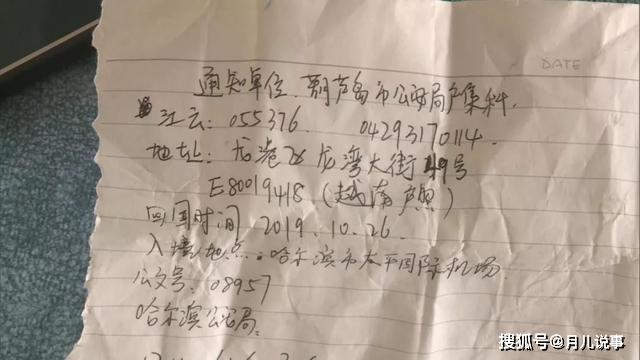 DATE
通知单位 葫芦岛市公安局户集科.
江云: 055376. 04293170114.
地址: 龙港区龙湾大街49号
E80019418 (越南户照)
回国时间 2019.10.26.
入境地点.哈尔滨市太平国际机场.
公文号: 08957
哈尔滨公安局.
搜狐号@月儿说事